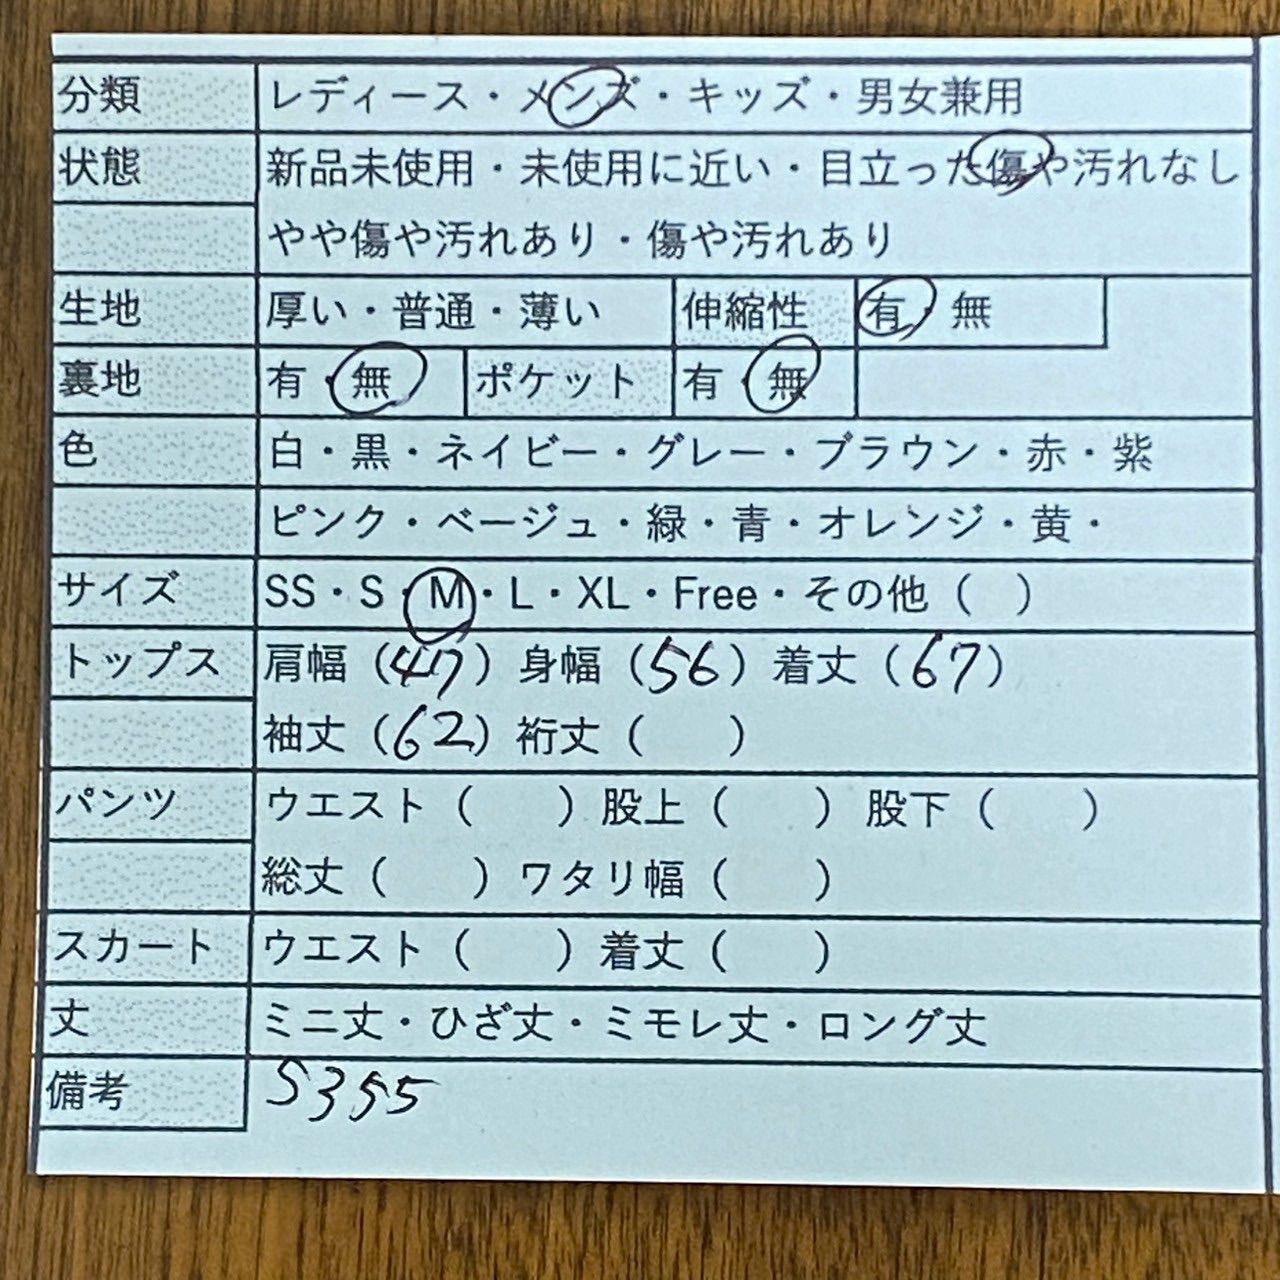 分類 レディース・メンズ・キッズ・男女兼用
状態 新品未使用・未使用に近い・目立った傷や汚れなし
やや傷や汚れあり・傷や汚れあり
生地 厚い・普通・薄い 伸縮性 有・無
裏地 有・無 ポケット 有・無
色 白・黒・ネイビー・グレー・ブラウン・赤・紫
ピンク・ベージュ・緑・青・オレンジ・黄・
サイズ SS・S・M・L・XL・Free・その他（ ）
トップス 肩幅（47）身幅（56）着丈（67）
袖丈（62）裄丈（ ）
パンツ ウエスト（ ）股上（ ）股下（ ）
総丈（ ）ワタリ幅（ ）
スカート ウエスト（ ）着丈（ ）
丈 ミニ丈・ひざ丈・ミモレ丈・ロング丈
備考 S355